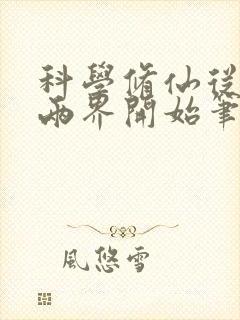 科學脩仙從
兩界開始筆
風悠雪